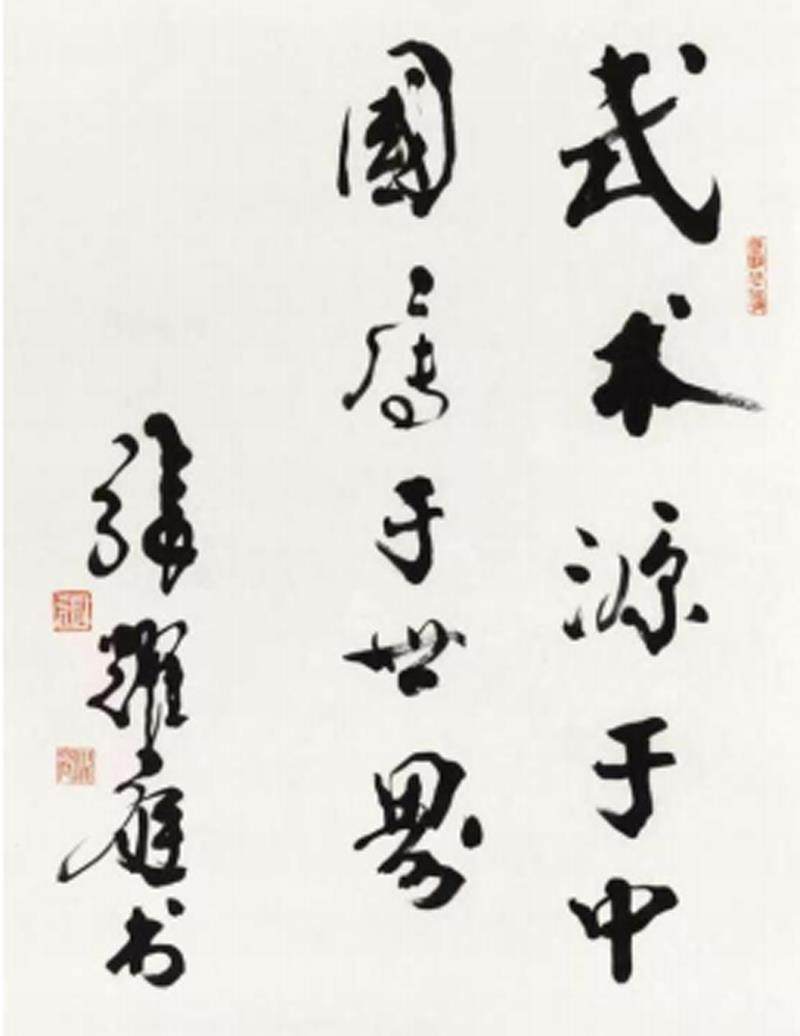 武术源于中
國属于世界
張耀庭书